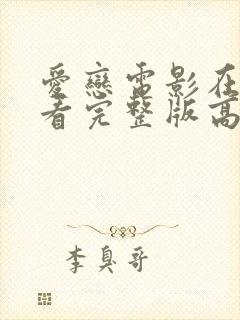 愛戀電影在
看完整版高
李臭哥